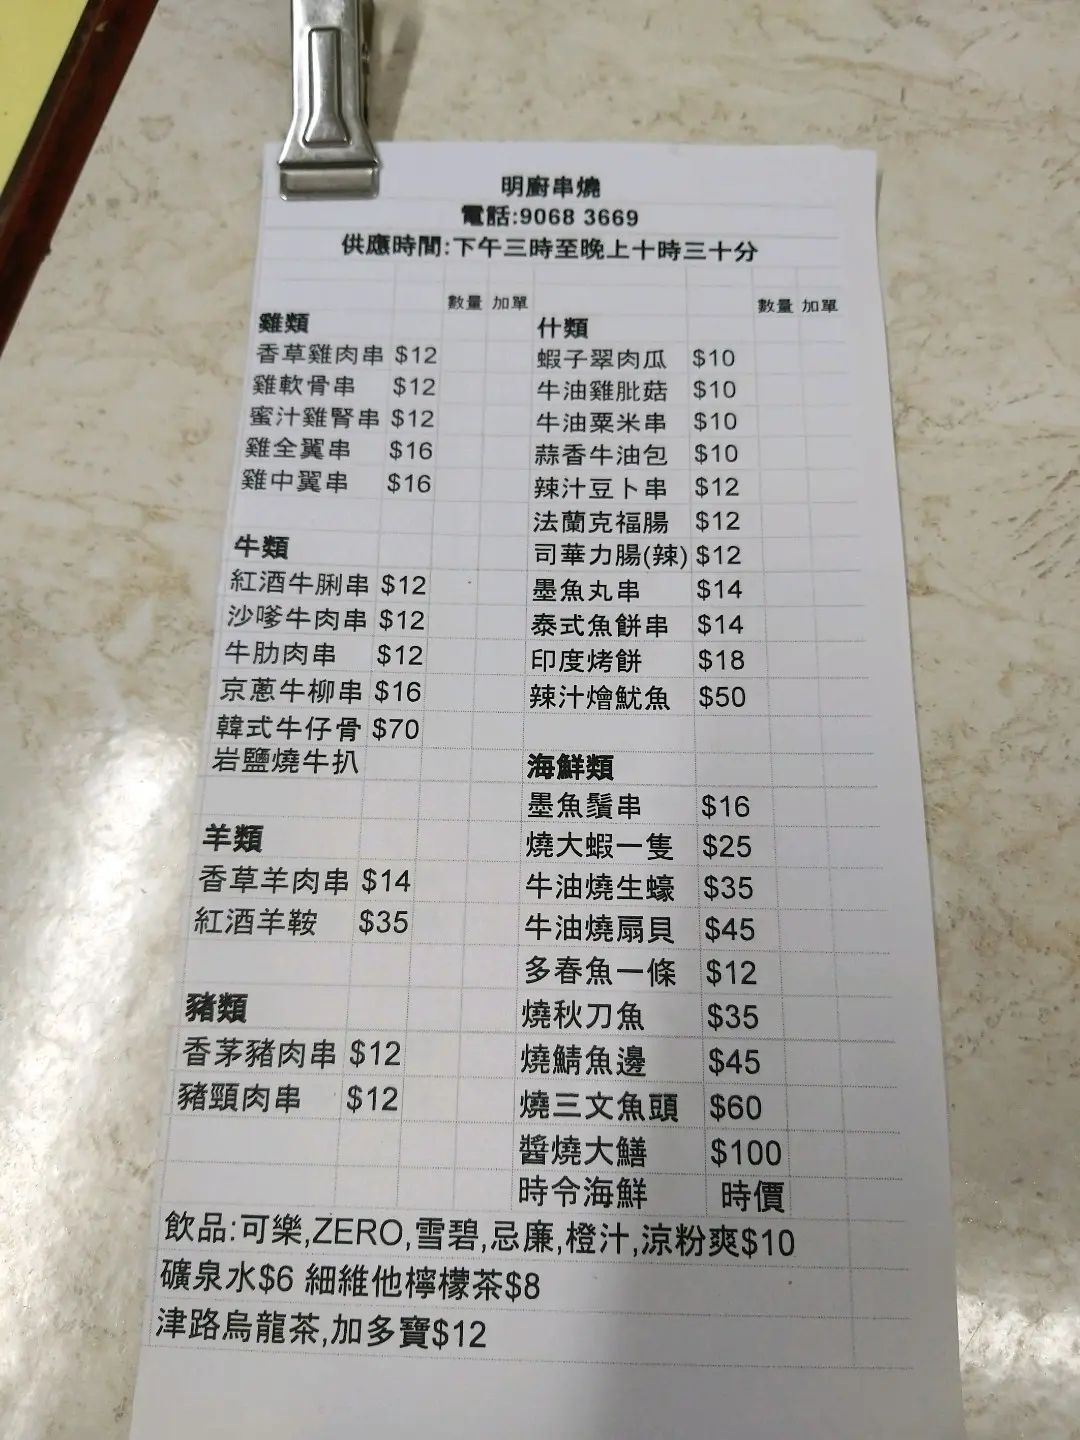 明廚串燒
電話:9068 3669
供應時間:下午三時至晚上十時三十分
數量 加單
雞類
香草雞肉串 $12
雞軟骨串 $12
蜜汁雞腎串 $12
雞全翼串 $16
雞中翼串 $16
牛類
紅酒牛脷串 $12
沙嗲牛肉串 $12
牛肋肉串 $12
京蔥牛柳串 $16
韓式牛仔骨 $70
岩鹽燒牛扒
羊類
香草羊肉串 $14
紅酒羊鞍 $35
豬類
香茅豬肉串 $12
豬頸肉串 $12
數量 加單
什類
蝦子翠肉瓜 $10
牛油雞肶菇 $10
牛油粟米串 $10
蒜香牛油包 $10
辣汁豆卜串 $12
法蘭克福腸 $12
司華力腸(辣) $12
墨魚丸串 $14
泰式魚餅串 $14
印度烤餅 $18
辣汁燴魷魚 $50
海鮮類
墨魚鬚串 $16
燒大蝦一隻 $25
牛油燒生蠔 $35
牛油燒扇貝 $45
多春魚一條 $12
燒秋刀魚 $35
燒鯖魚邊 $45
燒三文魚頭 $60
醬燒大鱔 $100
時令海鮮 時價
飲品:可樂,ZERO,雪碧,忌廉,橙汁,涼粉爽$10
礦泉水$6 細維他檸檬茶$8
津路烏龍茶,加多寶$12